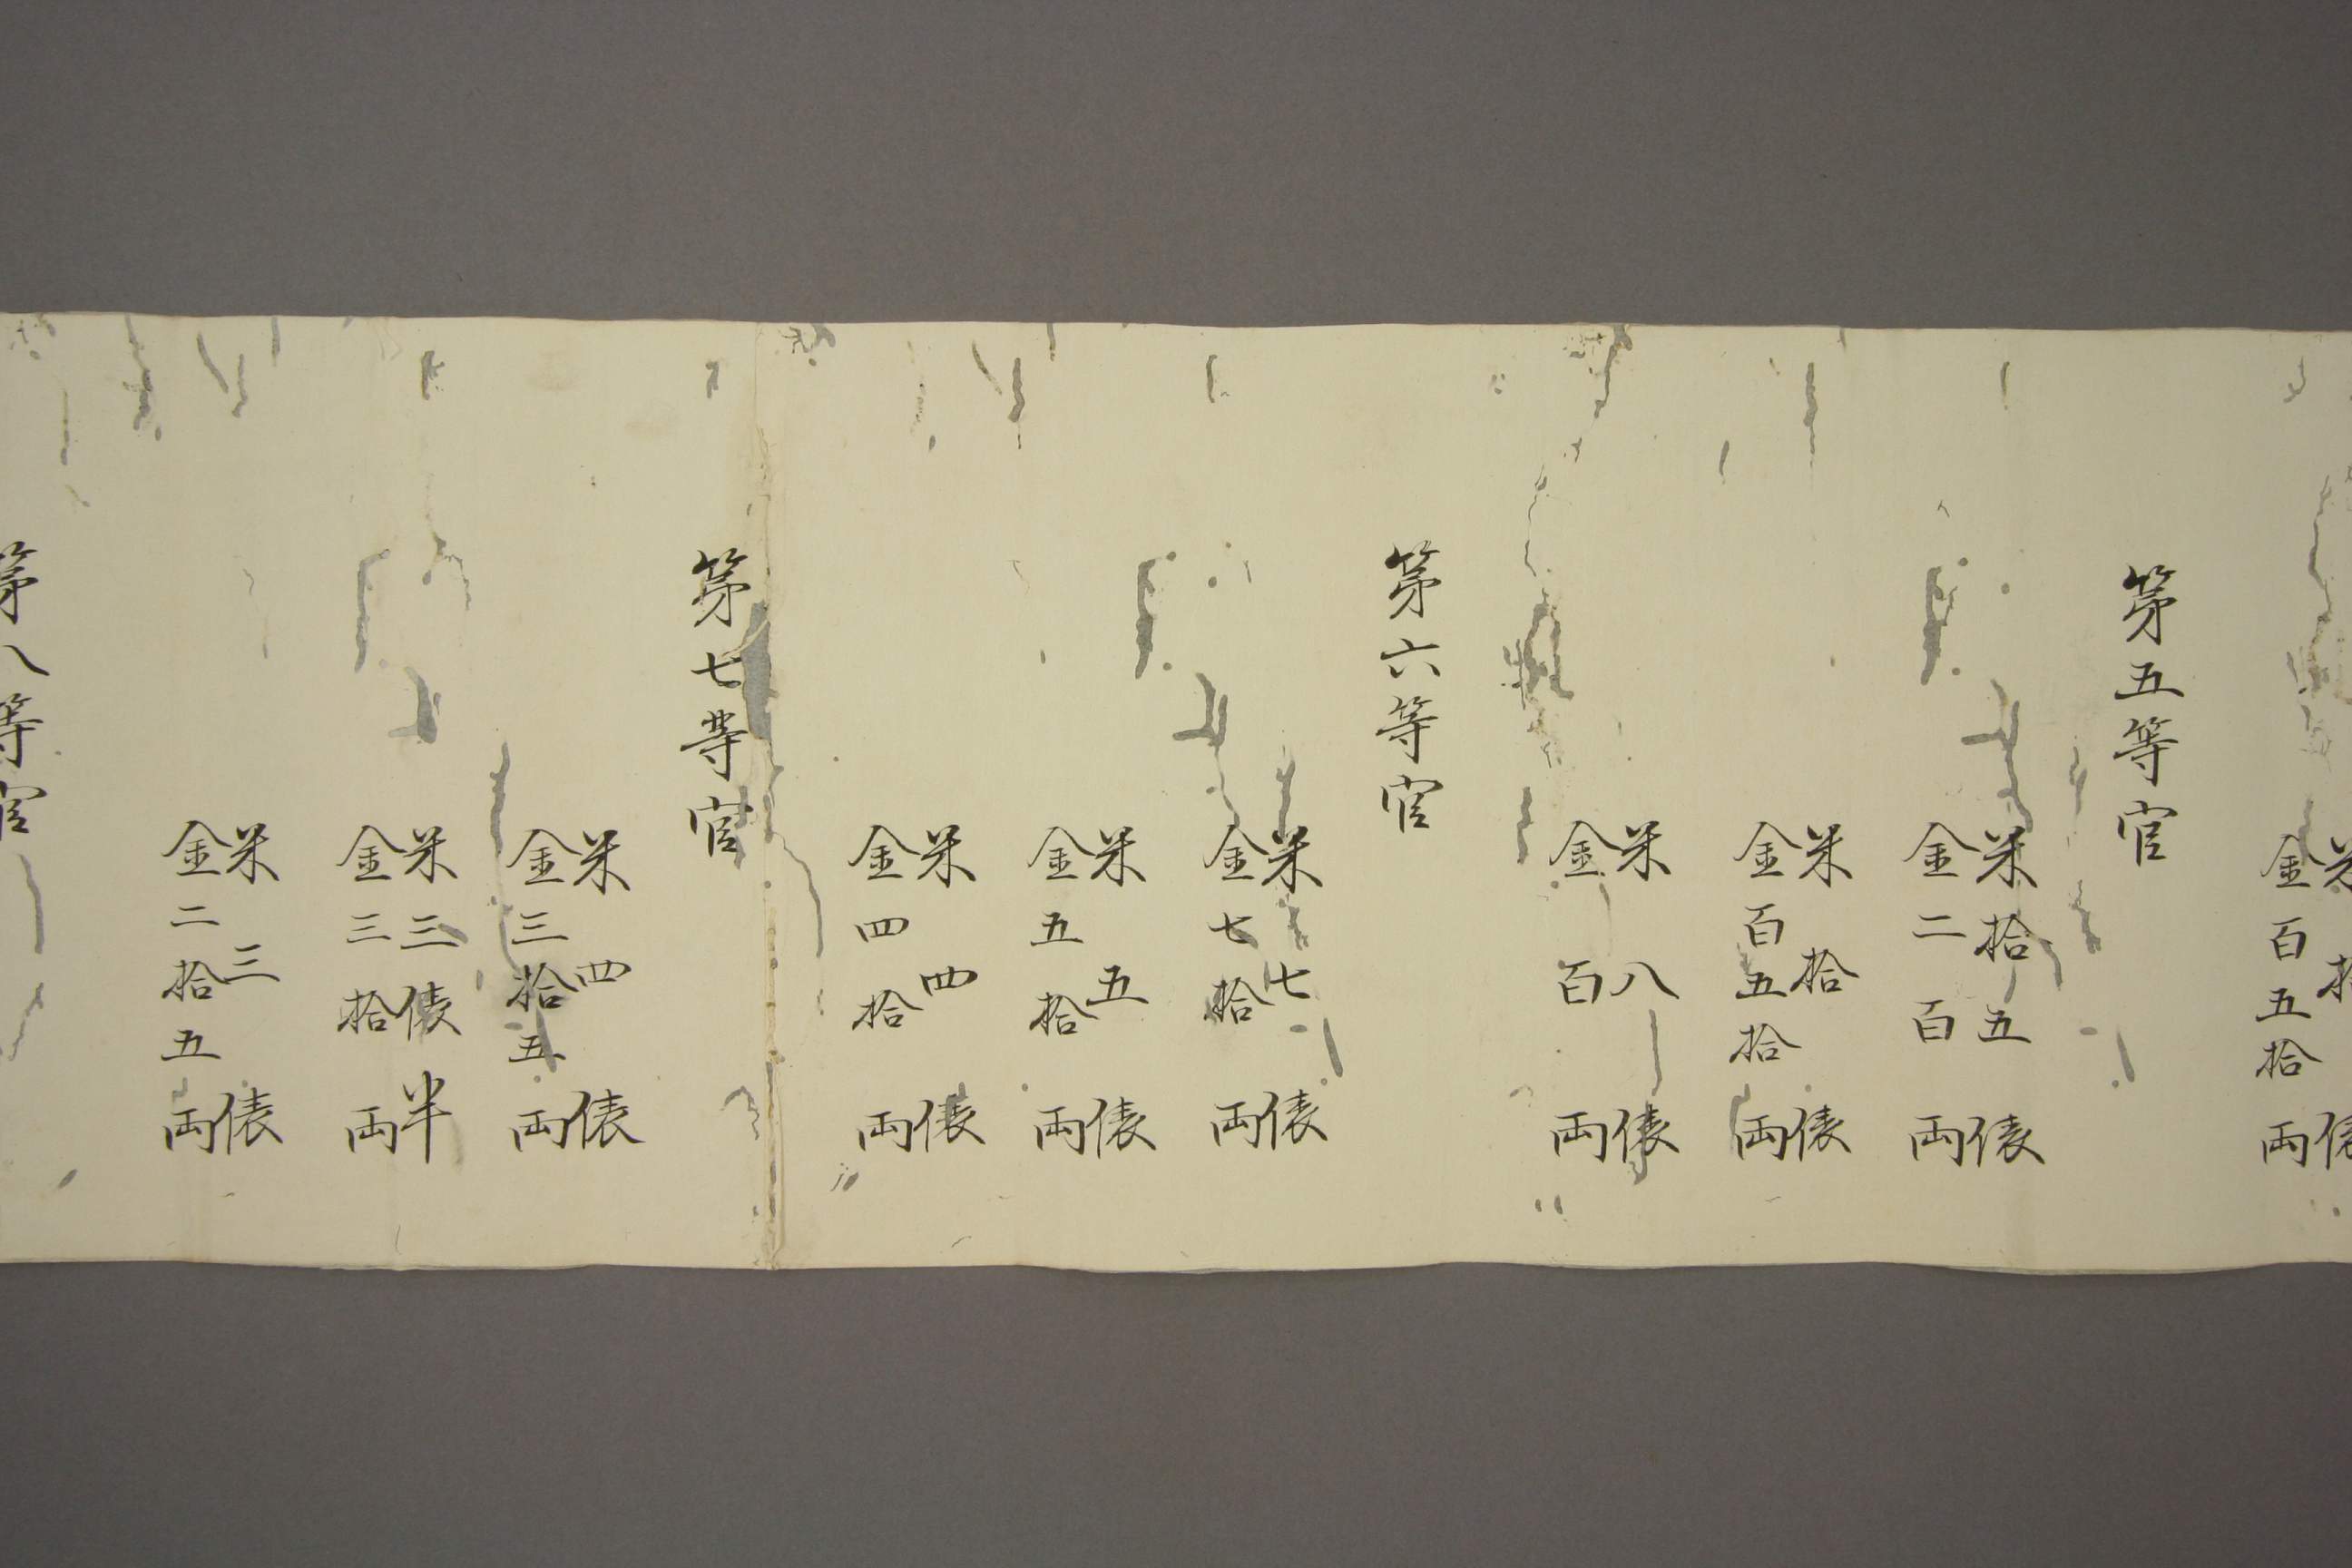 米拾俵
金百五拾両
第五等官
米拾五俵
金二百両
米拾俵
金百五拾両
米八俵
金百両
第六等官
米七俵
金七拾両
米五俵
金五拾両
米四俵
金四拾両
第七等官
米四俵
金三拾五両
米三俵半
金三拾両
米三俵
金二拾五両
第八等官